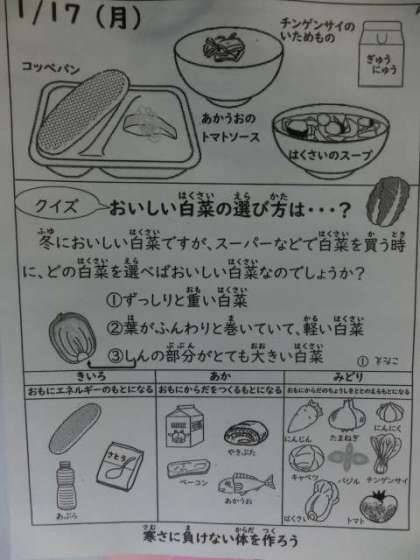 1/17（月）
チンゲンサイの
いためもの
ぎゅう
にゅう
コッペパン
あかうおの
トマトソース
はくさいのスープ
クイズ
おいしい白菜の選び方は・・・？
冬においしい白菜ですが、スーパーなどで白菜を買う時
に、どの白菜を選べばおいしい白菜なのでしょうか？
①ずっしりと重い白菜
②葉がふんわりと巻いていて、軽い白菜
③しんの部分がとても大きい白菜
きいろ
おもにエネルギーのもとになる
さとう
あぶら
あか
おもにからだをつくるもとになる
やきぶた
ベーコン
あかうお
みどり
おもにからだのちょうしをととのえるもとになる
にんじん
たまねぎ
にんにく
キャベツ
バジル
チンゲンサイ
はくさい
トマト
寒さに負けない体を作ろう